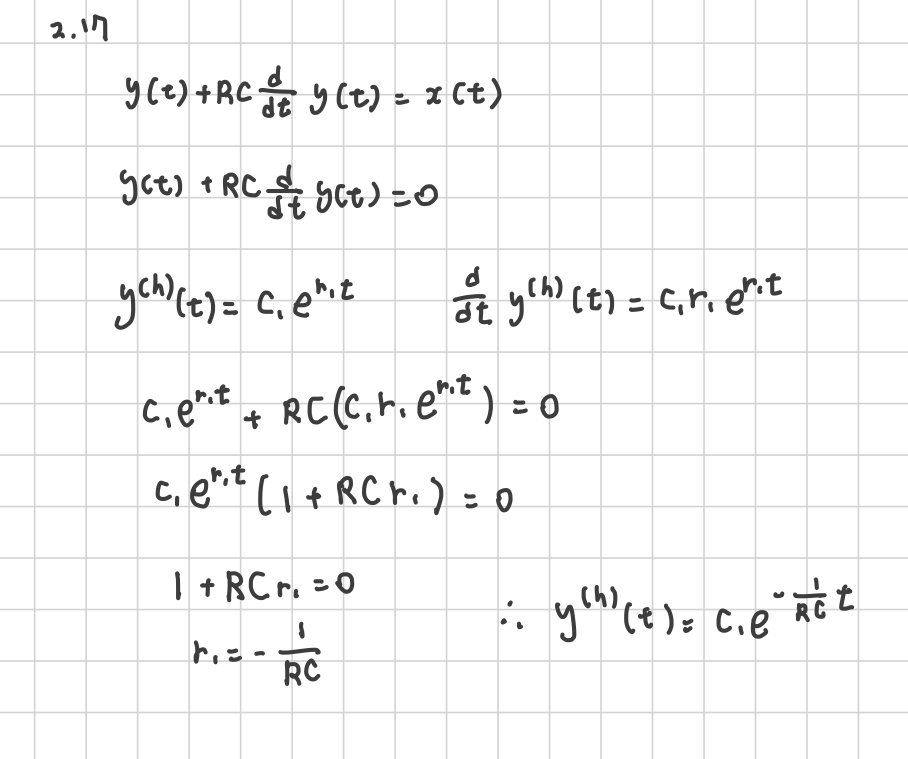 2.17
y(t) + RC d/dt y(t) = x(t)
y(t) + RC d/dt y(t) = 0
y^(h)(t) = c₁e^(r₁t)    d/dt y^(h)(t) = c₁r₁e^(r₁t)
c₁e^(r₁t) + RC(c₁r₁e^(r₁t)) = 0
c₁e^(r₁t)(1 + RCr₁) = 0
1 + RCr₁ = 0
r₁ = -1/RC    ∴ y^(h)(t) = c₁e^(-1/RC t)